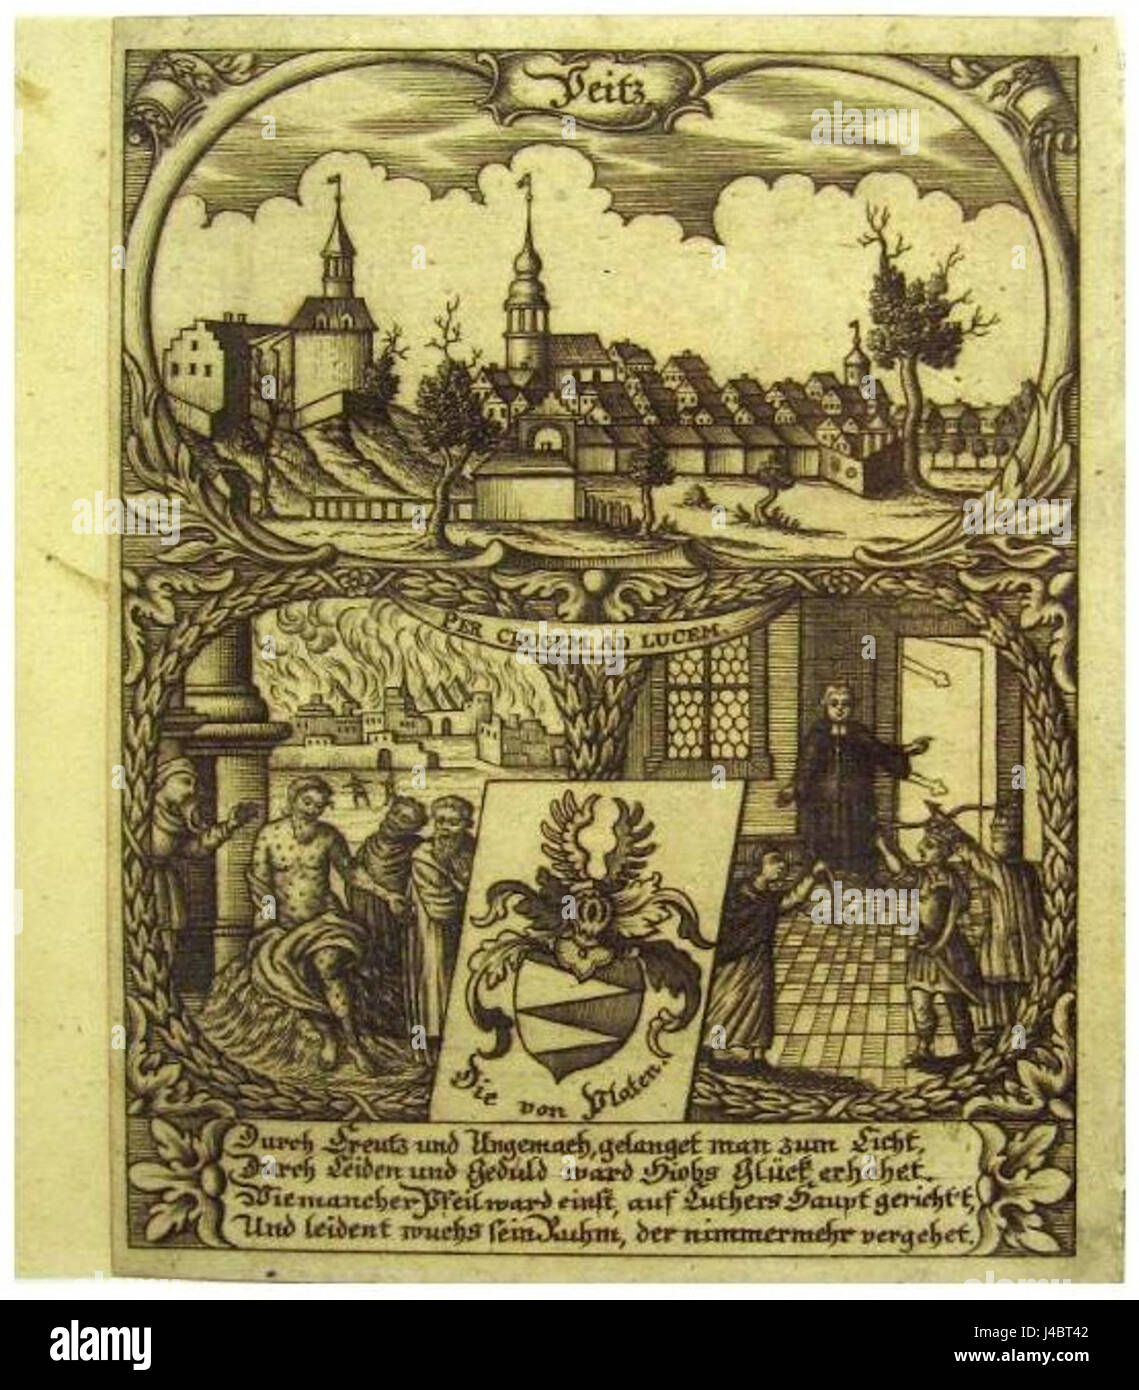 Peitz
PER CRUCEM AD LUCEM
Die von Platen.
Durch Creutz und Ungemach, gelanget man zum Licht,
Durch Leiden und Geduld ward Hiobs Glück erhöhet.
Wie mancher Pfeil ward einst, auf Luthers Haupt gericht't,
Und leident wuchs sein Ruhm, der nimmermehr vergehet.
alamy
Image ID: J4BT42
www.alamy.com